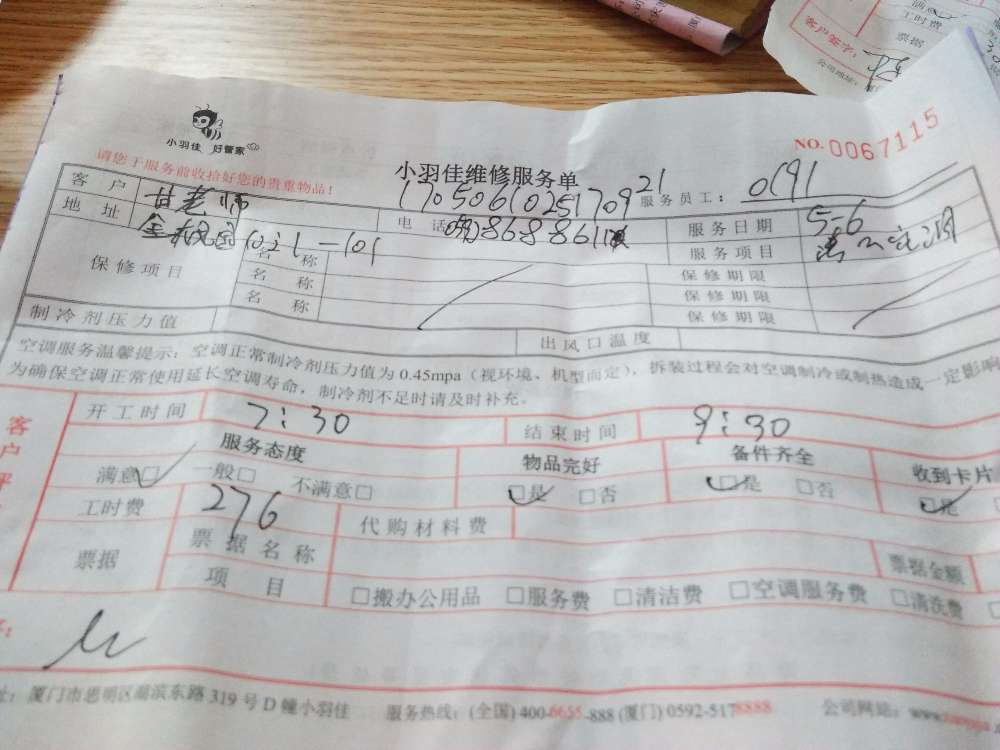 小羽佳 好管家
NO.0067115
请您于服务前收拾好您的贵重物品!
小羽佳维修服务单
1705061025170921 服务员工: 0191
客户 甘老师 电话 服务日期 5-6
地址 1021-101 服务项目
保修项目 名称 保修期限
名称 保修期限
名称 保修期限
制冷剂压力值 出风口温度
空调服务温馨提示: 空调正常制冷剂压力值为 0.45mpa (视环境、机型而定), 拆装过程会对空调制冷或制热造成一定影响
为确保空调正常使用延长空调寿命, 制冷剂不足时请及时补充。
开工时间 7:30 结束时间 9:30
服务态度 物品完好 备件齐全 收到卡片
满意□ 一般□ 不满意□ □是 □否 □是 □否 □是
工时费 276 代购材料费
票据 票据名称 票据金额
项目 □搬办公用品 □服务费 □清洁费 □空调服务费 □清洗费
厦门市思明区湖滨东路 319 号 D 幢小羽佳 服务热线: (全国) 400-6655-888 (厦门) 0592-5178888 公司网站:
工时费
票据
客户签字:
公司地址: